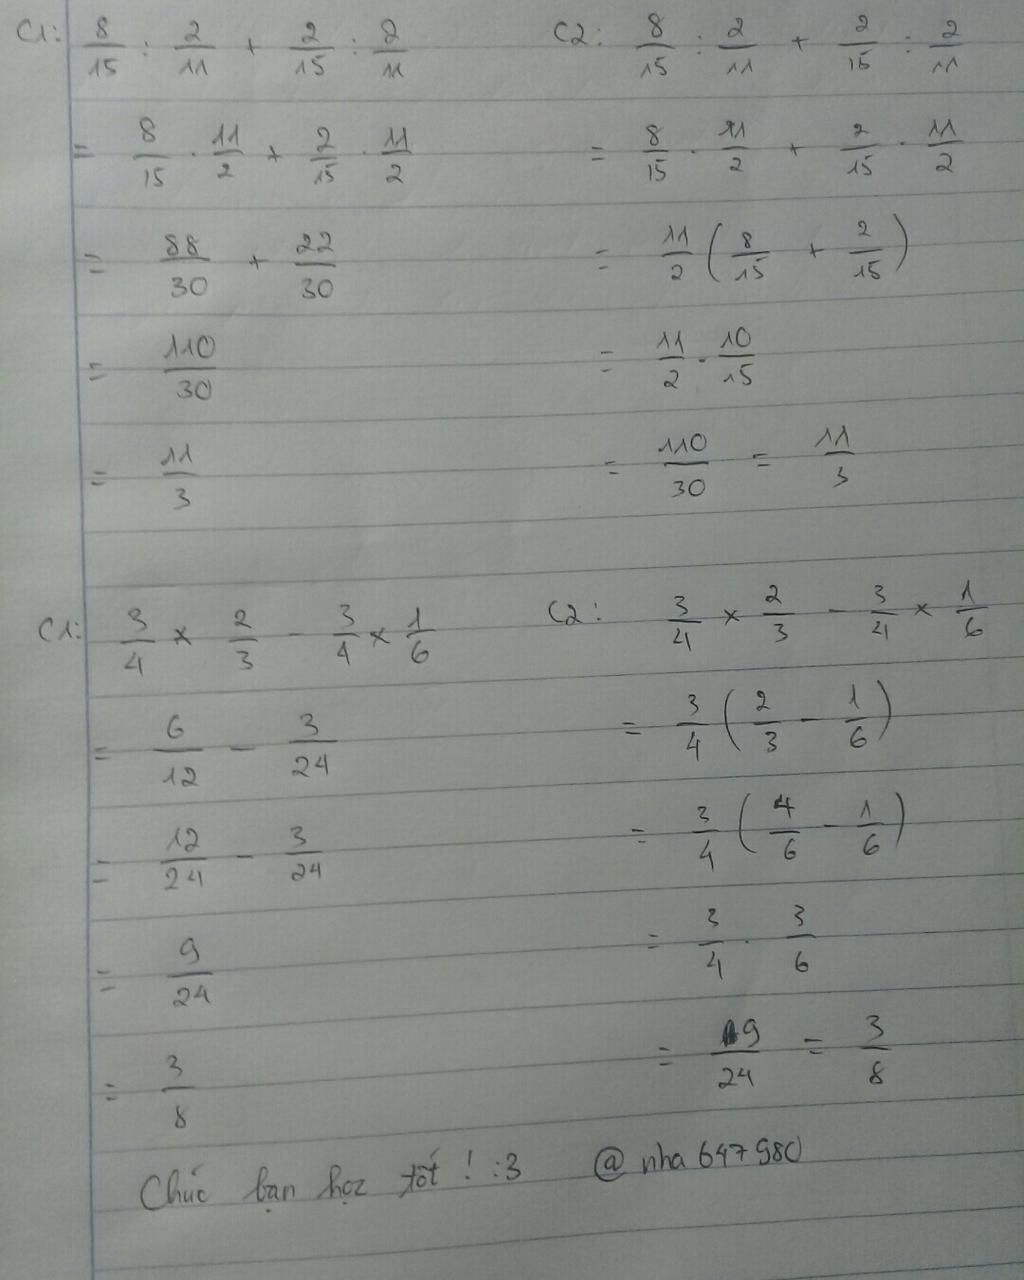 C1: 8/15 : 2/11 + 2/15 : 2/11
= 8/15 . 11/2 + 2/15 . 11/2
= 88/30 + 22/30
= 110/30
= 11/3
C2: 8/15 : 2/11 + 2/15 : 2/11
= 8/15 . 11/2 + 2/15 . 11/2
= 11/2 ( 8/15 + 2/15 )
= 11/2 . 10/15
= 110/30 = 11/3
C1: 3/4 × 2/3 - 3/4 × 1/6
= 6/12 - 3/24
= 12/24 - 3/24
= 9/24
= 3/8
C2: 3/4 × 2/3 - 3/4 × 1/6
= 3/4 ( 2/3 - 1/6 )
= 3/4 ( 4/6 - 1/6 )
= 3/4 . 3/6
= 9/24 = 3/8
Chúc bạn học tốt ! :3 @ nha647980